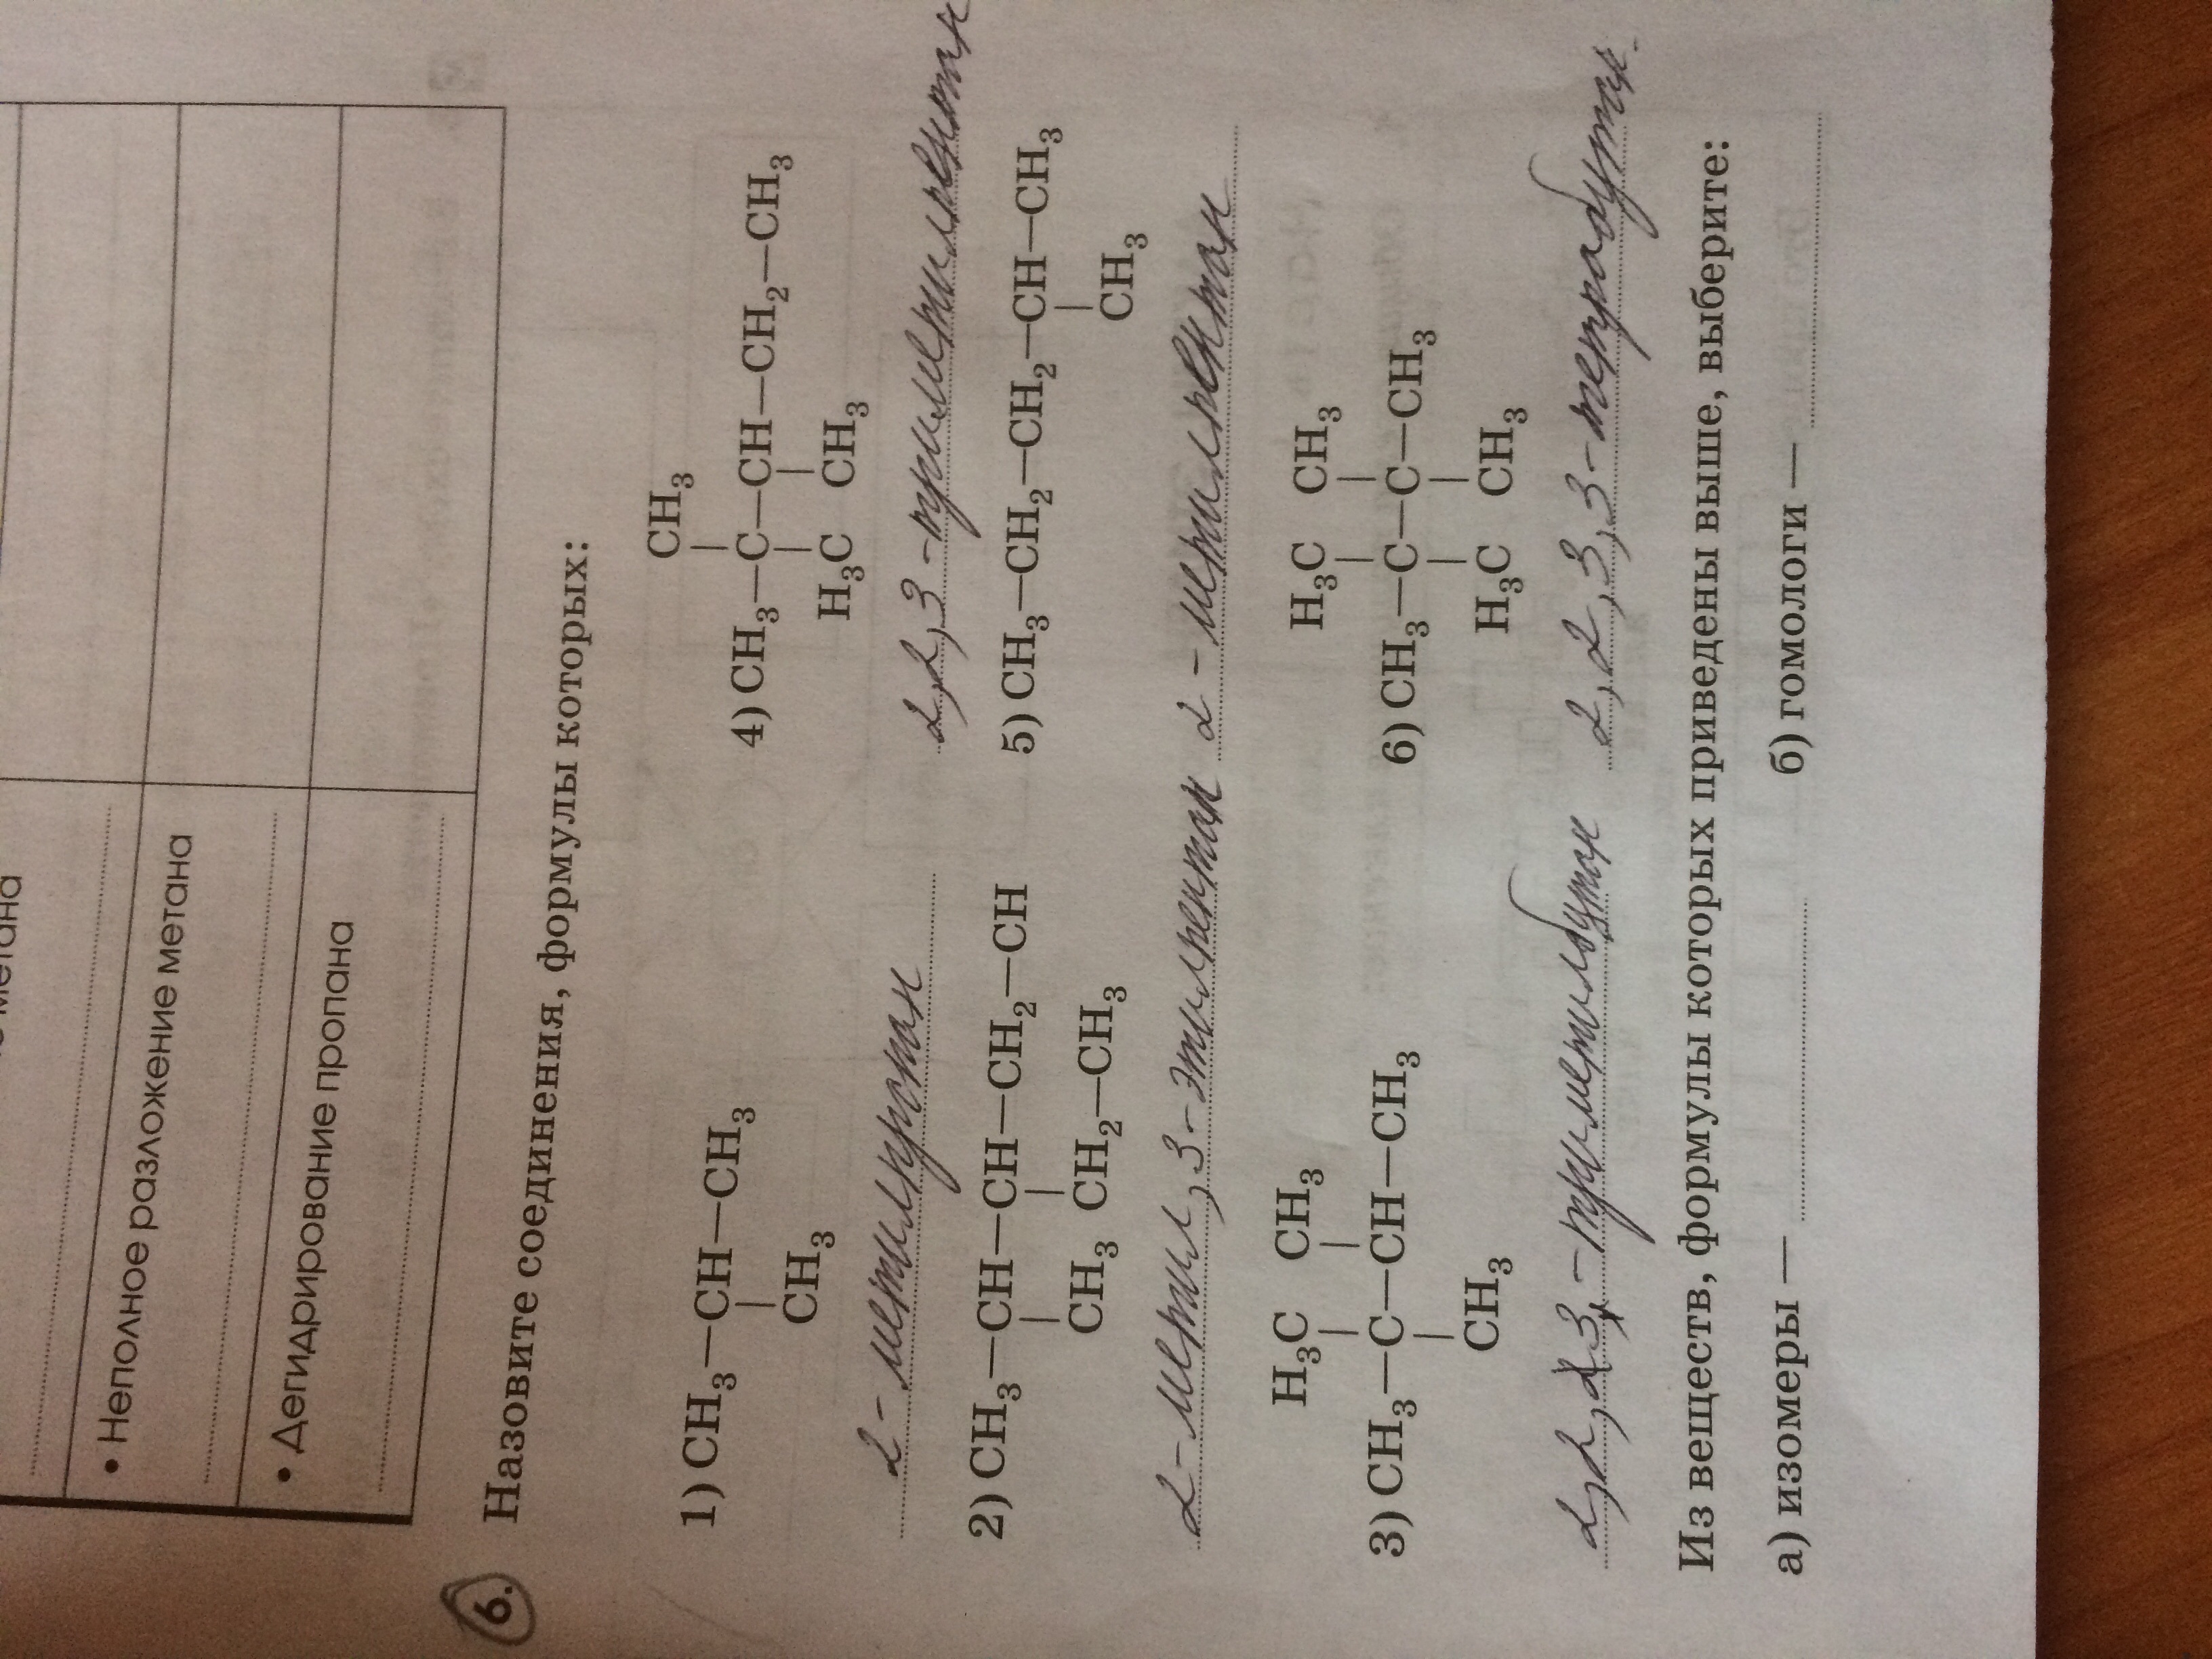 метана
• Неполное разложение метана
• Дегидрирование пропана
6. Назовите соединения, формулы которых:
1) CH3—CH—CH3
CH3
2-метилпропан
2) CH3—CH—CH—CH2—CH
CH3 CH2—CH3
2-метил, 3-этилпентан
H3C CH3
3) CH3—C—CH—CH3
CH3
2,2,3,-триметилбутан
CH3
4) CH3—C—CH—CH2—CH3
H3C CH3
2,2,3-триметилпентан
5) CH3—CH2—CH2—CH2—CH—CH3
CH3
2-метилпентан
H3C CH3
6) CH3—C—C—CH3
H3C CH3
2,2,3,3-тетрабутан
Из веществ, формулы которых приведены выше, выберите:
а) изомеры — б) гомологи —